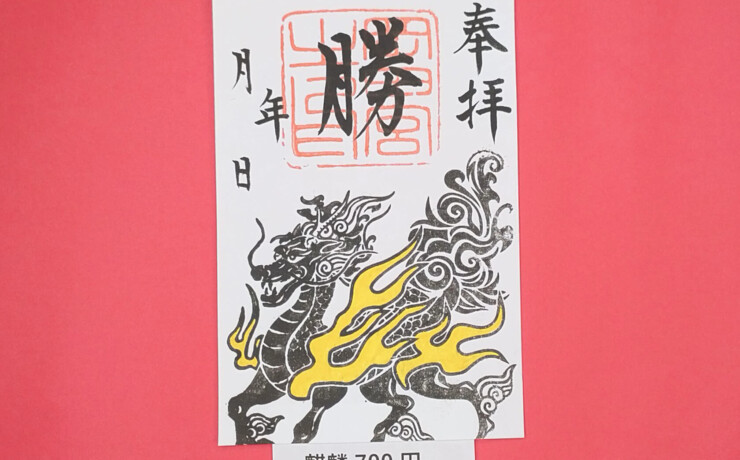 奉拝
勝
年
月
日
麒麟 700 円